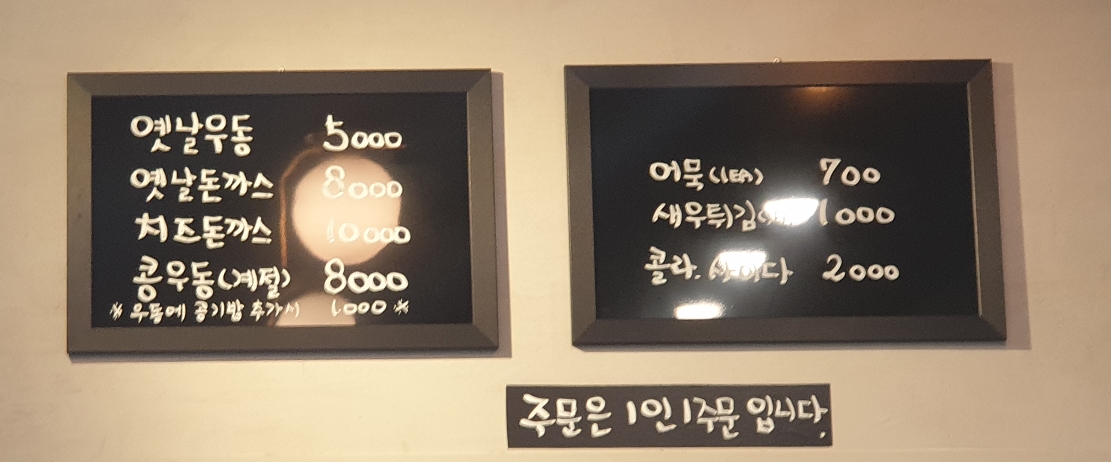 옛날우동 5000
옛날돈까스 8000
치즈돈까스 10000
콩우동(계절) 8000
* 우동에 공기밥 추가시 1.000 *
어묵(1EA) 700
새우튀김 1000
콜라. 사이다 2000
주문은 1인 1주문 입니다.